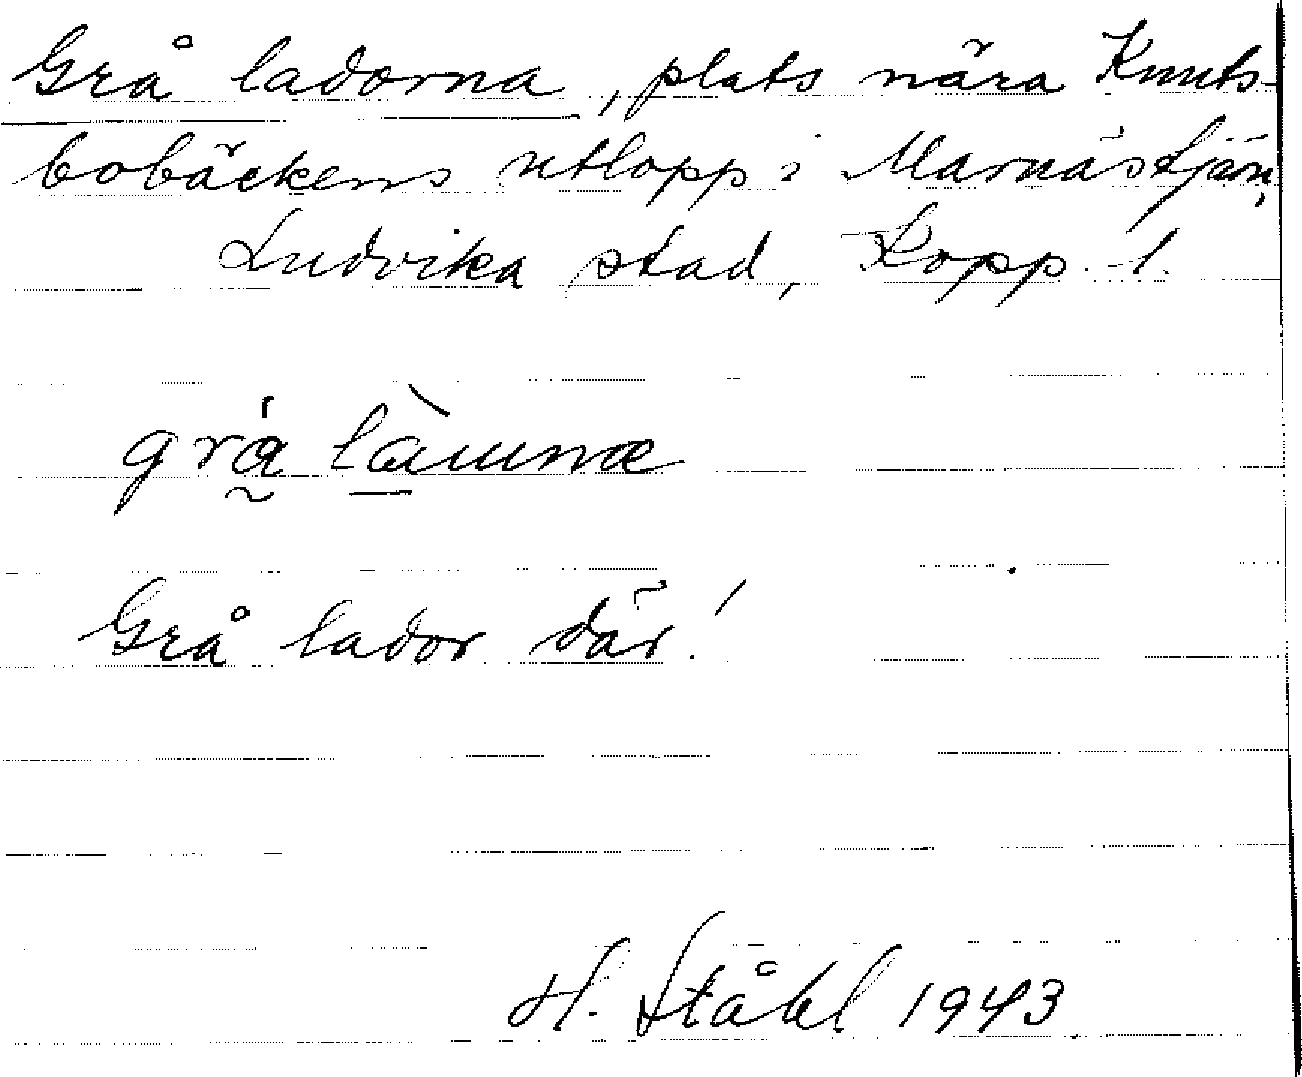 Grå ladorna, plats nära Knuts-
bobäckens utlopp i Marnästjärn,
Ludvika stad, Kopp. l.
grå̰ làunnæ
Grå lador där!
H. Ståhl 1943